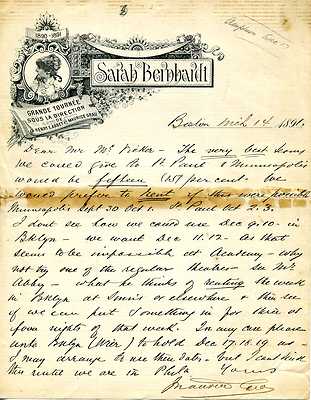 1890-1891
Sarah Bernhardt
GRANDE TOURNÉE
SOUS LA DIRECTION
DE
HENRY E. ABBEY & MAURICE GRAU
Boston Mch 14 1891.
Dear Mr Mc Vicker - The very best terms
we could give to St Paul & Minneapolis
would be fifteen (15) per cent. We
would prefer to rent if this were possible
Minneapolis Sept 30 Oct 1. St Paul Oct 2. 3.
I dont see how we could use Dec 9. 10. in
Bklyn - we want Dec 11. 12. As that
seems to be impossible at Academy - why
not try one of the regular theatres - see Mr
Abbey - what he thinks of renting the week
in Bklyn at or elsewhere & then see
if we can put something in for three or
four nights of that week. In any case please
write Bklyn to hold Dec 17. 18. 19 as
I may arrange to use them dates - but I cant hold
this until we are in Phila Yours
Maurice Grau